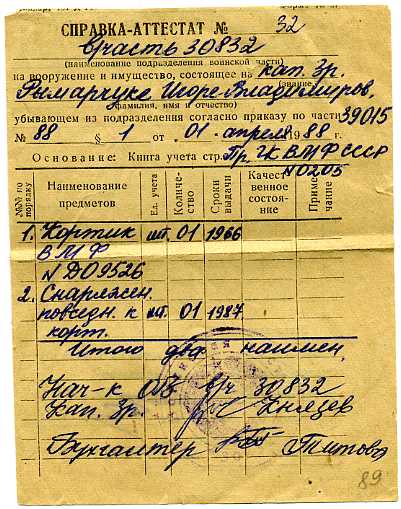 СПРАВКА-АТТЕСТАТ № 32
в/часть 30832
(наименование подразделения воинской части)
на вооружение и имущество, состоящее на кап. 3р.
(звание,
Рымарчуке Игоре Владимиров.
фамилия, имя и отчество)
убывающем из подразделения согласно приказу по части 39015
№ 88 § 1 от 01 апреля 1988 г.
Основание: Книга учета стр. Пр. ГК ВМФ СССР
N 0205
№№ по порядку
Наименование предметов
Ед. учета
Количество
Сроки выдачи
Качественное состояние
Примечание
1. Кортик шт. 01 1966
ВМФ
N Д09526
2. Снаряжен.
повседн. к шт. 01 1987
корт.
Итого два наимен.
Нач-к в/ч 30832
Кап. 3р. Князев
Бухгалтер Титова
89